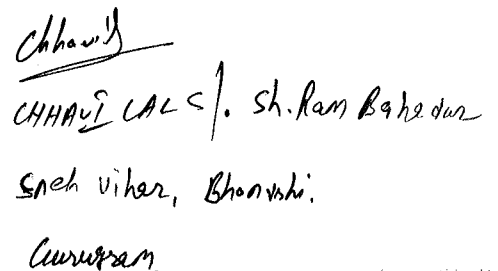 Chhavi
CHHAVI LAL C/. Sh. Ram Bahedur
Sneh vihar, Bhonvshi.
Gurugram